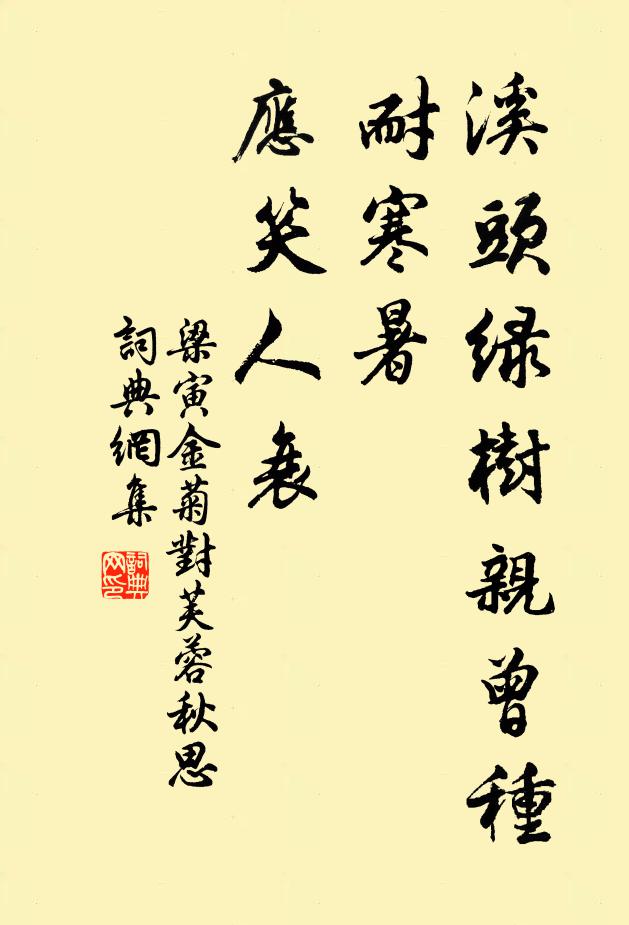 溪頭緑樹親曾種
耐寒暑
應笑人衰
梁寅金菊對芙蓉秋思
詞典網集
詞典網印